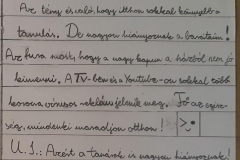 Az tény és való, hogy itthon sokkal könnyebb a
tanulás. De nagyon hiányoznak a barátaim!
Az fura most, hogy a nagy kapun a házból nem jö
kimenni. A TV-ben és a Youtube-on sokkal több
koronavírusos reklám jelenik meg. Fő az egész-
ség, mindenki maradjon otthon!
U.I.: Azért a tanárok is nagyon hiányoznak!